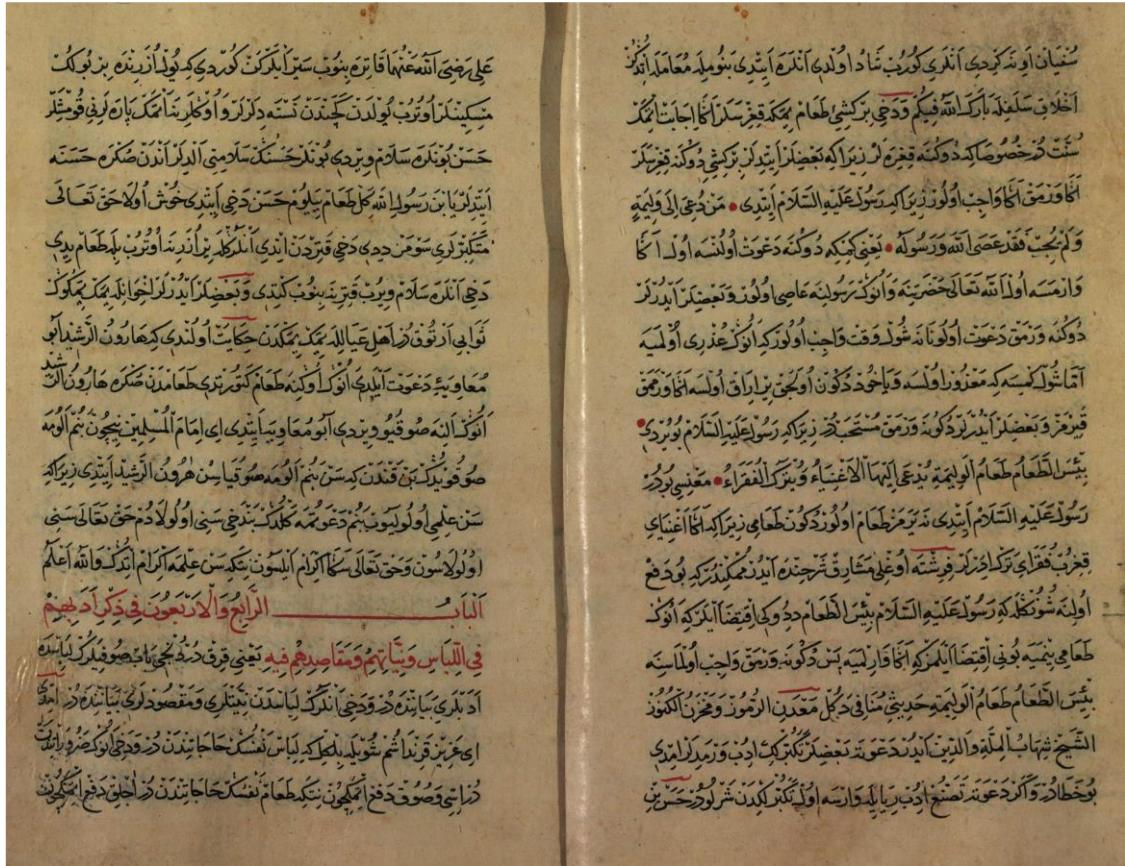 سُفْيَان اَوِنَه كِردى اَنلرى كُورُب شاد اُولدى اَنلره اَيِتدى بنُومله مُعامله اَتدكز
اَخلاق سَلفله بارك الله فيكم وَدَخى بركشى طعام يمكه قِغِرسَلر اكا اِجابت اتمك
سُنّت دُر خُصوصا كه دُوكنه قِغِره لر زيرا كه بَعضيلر اَيتديلر بركشى دُوكنه قِغِرسَلر
اكا وَرمق اكا واجب اُولُور زيرا كه رسول عليه السلام اَيِتدى • مَن دُعِىَ اِلى وَليمَةٍ
وَلَم يُجِب فَقَد عَصَى الله وَرَسُولَهُ • يعنى كمنكه دُوكنه دَعوت اُولنسه اُول اكا
وَارمسه اُول الله تعالى حَضرتنه وَانوك رَسُولنه عاصى اُولور وَبعضيلر اَيدُرلر
دُوكنه وَرمق دَعوت اُولونانه شُول وَقت واجب اُولوركه انوك عُذرى اُولميه
اَمّا شُول كمسه كه مَعذور اُولسه وَياخود دُكون اُولجق ير اِراق اُولسه اكا وَرمق
قيرمز وَبَعضيلر اَيدُرلر دُكونه وَرمق مُستحبدُر زيرا كه رسول عليه السلام بُويُردى •
بِئسَ الطَّعَامُ طَعَامُ الوَليمَةِ يُدعَى اِلَيهَا الاَغنياءُ وَيُترَكُ الفُقَراءُ • مَعنِسى بُودُرْ
رَسُول عليه السلام اَيتدى نه يَرمَز طَعام اُولور دُكون طَعامى زيرا كه اكا اَغنياى
قِغِرُب فُقَراى تَرك ادرلر فرشته اُوغلى مَشارق شرحنده اَيدُر مُمكندر كه بُو دفع
اُولنه شُونكله كه رَسُول عليه السلام بِئسَ الطَّعَام ددوكى اِقتِضا اَيلر كه انوك
طعامى ينميه بُونى اِقتِضا اَيلمز كه اكا وَارلميه پَس دُكونه وَرمق واجب اُولماسنه
بِئسَ الطَّعَام طَعَامُ الوَليمَةِ حَديثى مُنافى دَكُل مَعدن الرّموز وَمخزن الكُنوز
الشّيخ شِهابُ المِلّة وَالدّين اَيدُر دَعوته بَعضيلر تكبّرلك ادُب وَرمدلر امدى
بُو خَطادُر وَاكر دَعوته تَصَنُّع ادُب ريايله وارسه اُول تكبّرلكدن شَرلودُر حَسَن بن
عَلى رضى الله عنهما قاتره بنوب سَير اَيلركن كوردى كه يُول اُزرنده بر بُولك
مسكينلر اُوتُرب يُولدن كَچندن نَسته دلرلر وَاُوكلرينا اَتمك پاره لرنى قُومشلر
حَسَن بُونلره سَلام ويردى بُونلر حَسنك سَلامنى اَلدلر اَندن صكره حَسَنه
اَيتدلر يا ابن رسول الله كَل طعام ييلوم حَسن دخى اَيتدى خُوش اُولا حق تعالى
مُتكبّرلرى سَومَز ددى دَخى قتردن اَيندى اَنلركله ير اُزرنه اُوتُرب بله طَعام يدى
دَخى اَنلره سَلام ويرُب قترينه بنوب كتدى وَبَعضيلر اَيدُرلر اخوانله يمك يمكوك
ثَوابى اَرتوقدر اهل عياليله يمك يمكدن حكايت اُولندى كه هارون الرّشيد اَبو
مُعاويَه يى دَعوت اَيلدى انوك اُوكنه طَعام كتورتدى طَعامدن صكره هارون الرّشيد
انوك اَلينه صُو قُيوويردى اَبو مُعاويه اَيتدى اى اِمام المُسلمين نيچون بنُم اَلومه
صُو قويدك بَن قَندن كه سَن بنُم اَلومه صُو قياسن هٰرون الرّشيد اَيتدى زيرا كه
سَن علمى اُولولَيوب بنُم دَعوتمه كَلدك بَندخى سَنى اُولولادُم حق تعالى سَنى
اُولولاسون وَحق تعالى سكا اكرام اَيلسون نتكه سَن علمه اكرام اتدك وَالله اَعلم
اَلبَابُ الرَّابِعُ وَالاَربَعُونَ فى ذِكرِ اَدَبِهِم
فى اللِّباسِ وَنِيّاتِهِم وَمَقاصِدِهِم فيهِ يَعنى قرق دُردُنجى باب صُوفيلرك لباسده
اَدَبلرى بَياننده دُر وَدخى اَنلرك لباسدن نيّتلرى وَمقصودلرى بَياننده دُر امدى
اى عَزيز قَرنداشُم شُويله بلكل كه لباس نَفسك حاجاتندن دُر وَدخى انوك ضَروراتندن
دُر اسّى وَصُوق دَفع اتمكچون نتكه طَعام نَفسك حاجاتندن دُر اَجلق دَفع اتمكچون